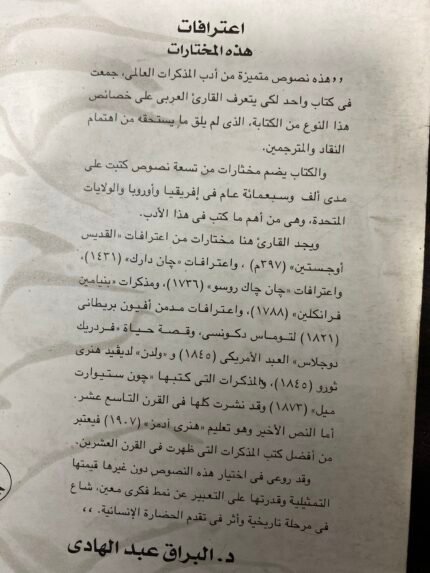 اعترافات
هذه المختارات
,, هذه نصوص متميزة من أدب المذكرات العالمى، جمعت
فى كتاب واحد لكى يتعرف القارئ العربى على خصائص
هذا النوع من الكتابة، الذى لم يلق ما يستحقه من اهتمام
النقاد والمترجمين.
والكتاب يضم مختارات من تسعة نصوص كتبت على
مدى ألف وسبعمائة عام فى إفريقيا وأوروبا والولايات
المتحدة، وهى من أهم ما كتب فى هذا الأدب.
ويجد القارئ هنا مختارات من اعترافات «القديس
أوجستين» (٣٩٧م) ، واعترافات «چان دارك» (١٤٣١)،
واعترافات «چان چاك روسو» (١٧٣٦)، ومذكرات «بنيامين
فرانكلين» (١٧٨٨)، واعترافات مدمن أفيون بريطانى
(١٨٢١) لتوماس دكونسى، وقصة حياة «فردريك
دوجلاس» العبد الأمريكى (١٨٤٥) و «ولدن» لديڤيد هنرى
ثورو (١٨٤٥)، والمذكرات التى كتبها «چون ستيوارت
ميل» (١٨٧٣) وقد نشرت كلها فى القرن التاسع عشر.
أما النص الأخير وهو تعليم «هنرى أدمز» (١٩٠٧) فيعتبر
من أفضل كتب المذكرات التى ظهرت فى القرن العشرين.
وقد روعى فى اختيار هذه النصوص دون غيرها قيمتها
التمثيلية وقدرتها على التعبير عن نمط فكرى معين، شاع
فى مرحلة تاريخية وأثر فى تقدم الحضارة الإنسانية. ،،
د. البراق عبد الهادى